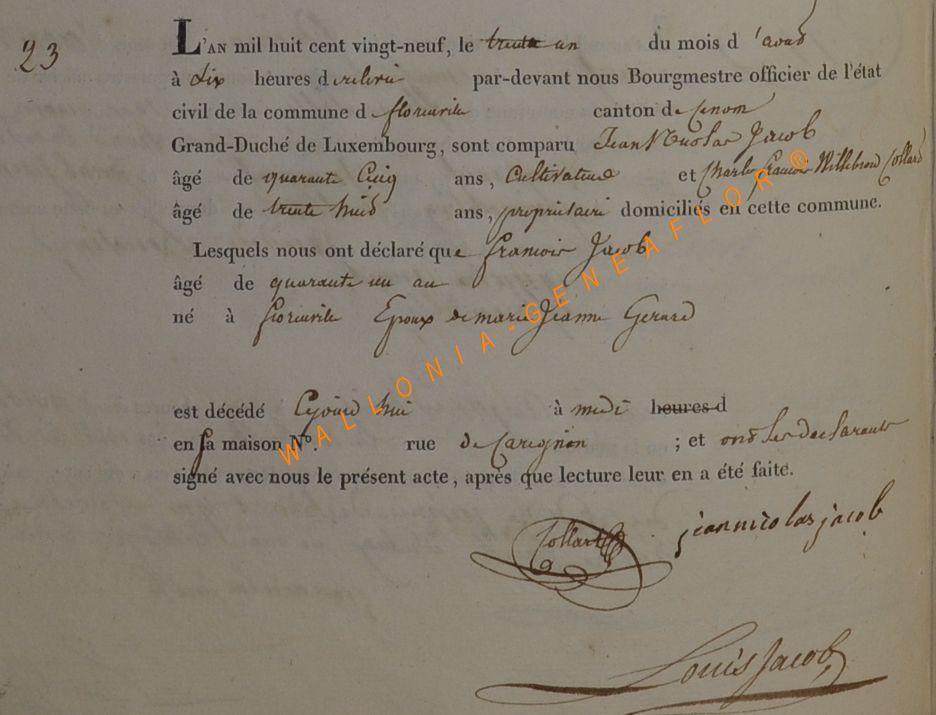 23
L'AN mil huit cent vingt-neuf, le trente un du mois d'aout
à dix heures d relevée par-devant nous Bourgmestre officier de l'état
civil de la commune d florenville canton de
Grand-Duché de Luxembourg, sont comparu Jean Nicolas Jacob
âgé de quarante Cinq ans, Cultivateur et Charles francois Willebrord Collard
âgé de trente huit ans, propriétaire domiciliés en cette commune.
Lesquels nous ont déclaré que francois Jacob
âgé de quarante un an
né à florenville Epoux de marie Jeanne Gerard
est décédé Cejourd hui à midi heures d
en sa maison N°. rue de Carignan ; et ont les declarants
signé avec nous le présent acte, après que lecture leur en a été faite.
Collard jeannicolas jacob
Louis Jacob
WALLONIA-GENEAFLOR®